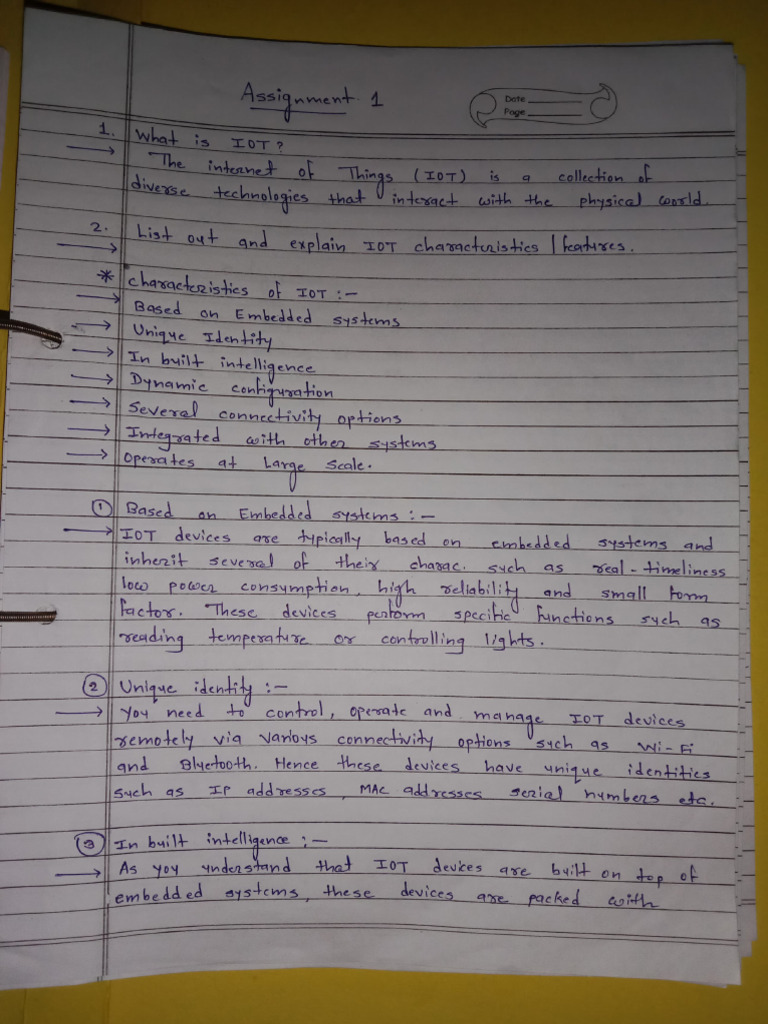 Assignment 1
Date
Page
1. What is IOT?
→ The internet of Things (IOT) is a collection of
diverse technologies that interact with the physical world.
2. List out and explain IOT characteristics / features.
→
* Characteristics of IOT :-
→ Based on Embedded systems
→ Unique Identity
→ In built intelligence
→ Dynamic configuration
→ Several connectivity options
→ Integrated with other systems
→ Operates at Large Scale.
① Based on Embedded systems :-
→ IOT devices are typically based on embedded systems and
inherit several of their charac. such as real-timeliness
low power consumption, high reliability and small form
factor. These devices perform specific functions such as
reading temperature or controlling lights.
② Unique identity :-
→ You need to control, operate and manage IOT devices
remotely via various connectivity options such as Wi-Fi
and Bluetooth. Hence these devices have unique identities
such as IP addresses, MAC addresses serial numbers etc.
③ In built intelligence :-
→ As you understand that IOT devices are built on top of
embedded systems, these devices are packed with